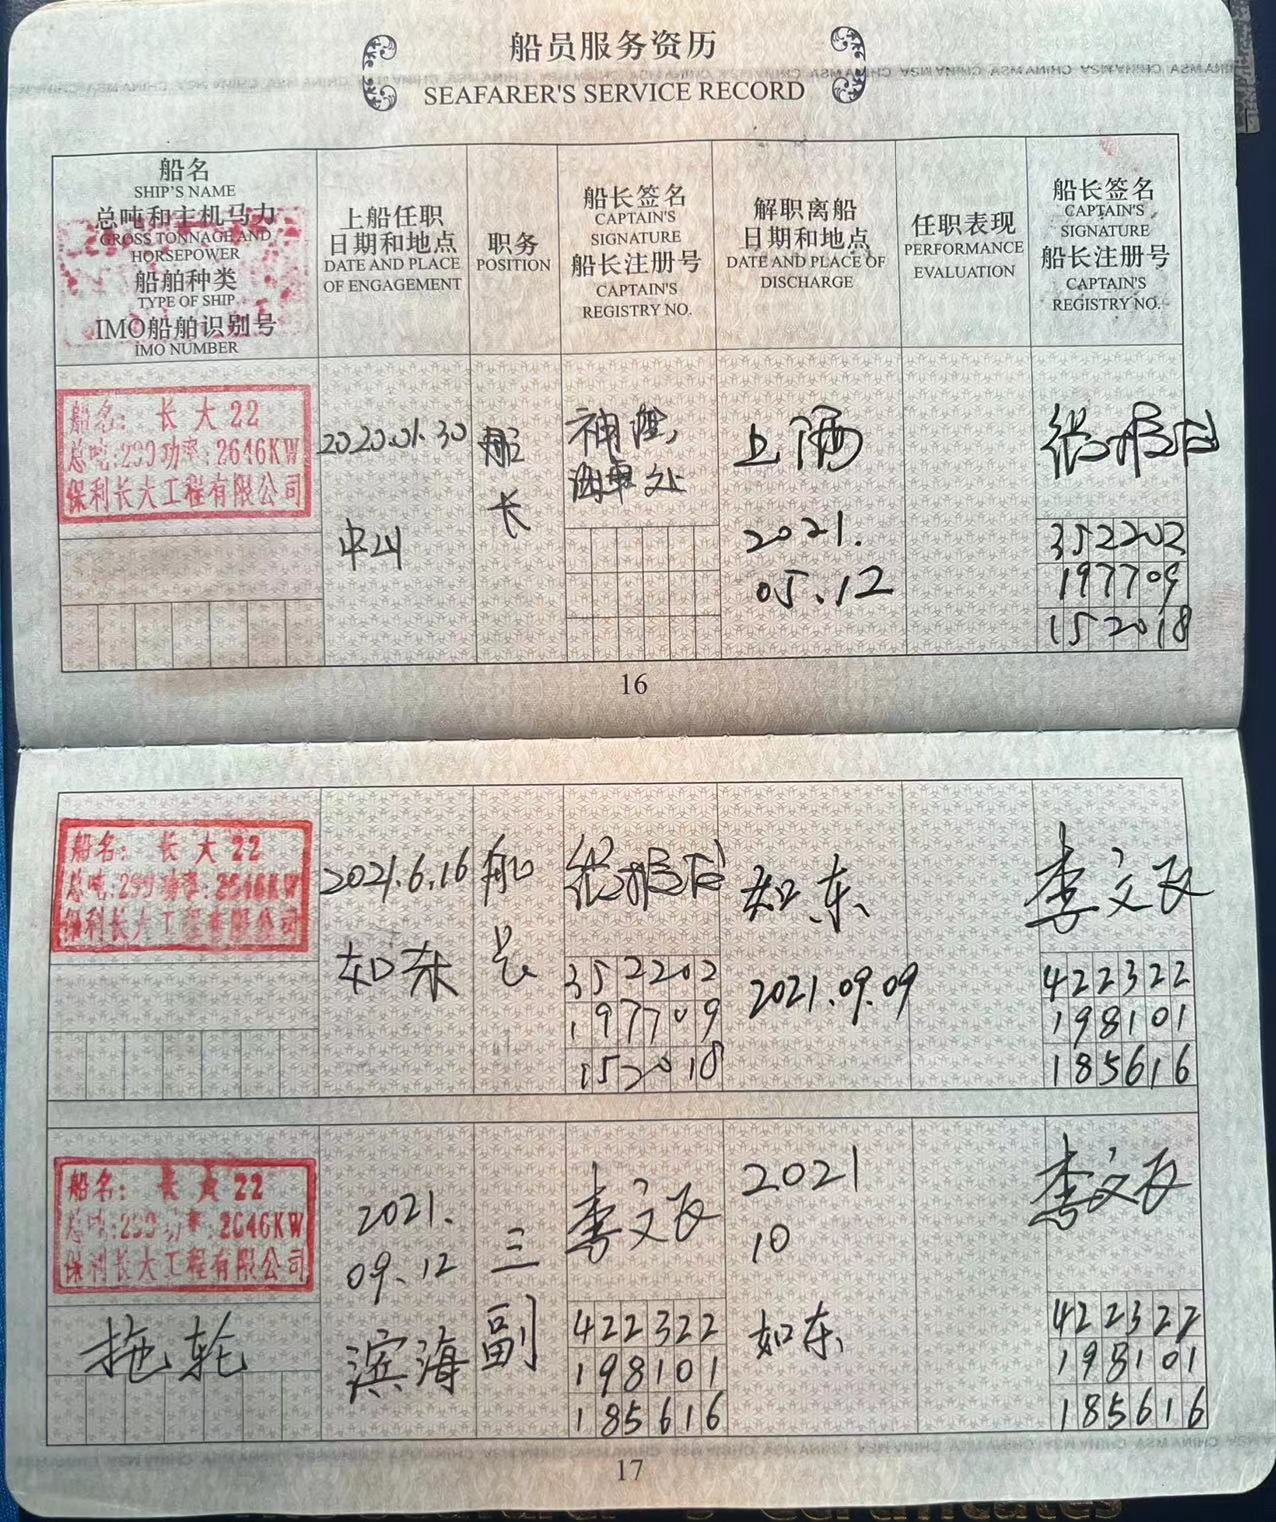 船员服务资历
SEAFARER'S SERVICE RECORD
船名
SHIP'S NAME
总吨和主机马力
GROSS TONNAGE AND
HORSEPOWER
船舶种类
TYPE OF SHIP
IMO船舶识别号
IMO NUMBER
上船任职
日期和地点
DATE AND PLACE
OF ENGAGEMENT
职务
POSITION
船长签名
CAPTAIN'S
SIGNATURE
船长注册号
CAPTAIN'S
REGISTRY NO.
解职离船
日期和地点
DATE AND PLACE OF
DISCHARGE
任职表现
PERFORMANCE
EVALUATION
船长签名
CAPTAIN'S
SIGNATURE
船长注册号
CAPTAIN'S
REGISTRY NO.
船名: 长大22
总吨:299功率:2646KW
保利长大工程有限公司
2020.01.30
中山
船
长
海事处
上
2021.
05.12
352202
197709
152018
16
船名: 长大22
总吨:299功率:2646KW
保利长大工程有限公司
2021.6.16
如东
船
长
352202
197709
152018
如东
2021.09.09
李文
422322
198101
185616
船名: 长大22
总吨:299功率:2646KW
保利长大工程有限公司
拖轮
2021.
09.12
滨海
三
副
李文
422322
198101
185616
2021
10
如东
李文
422322
198101
185616
17